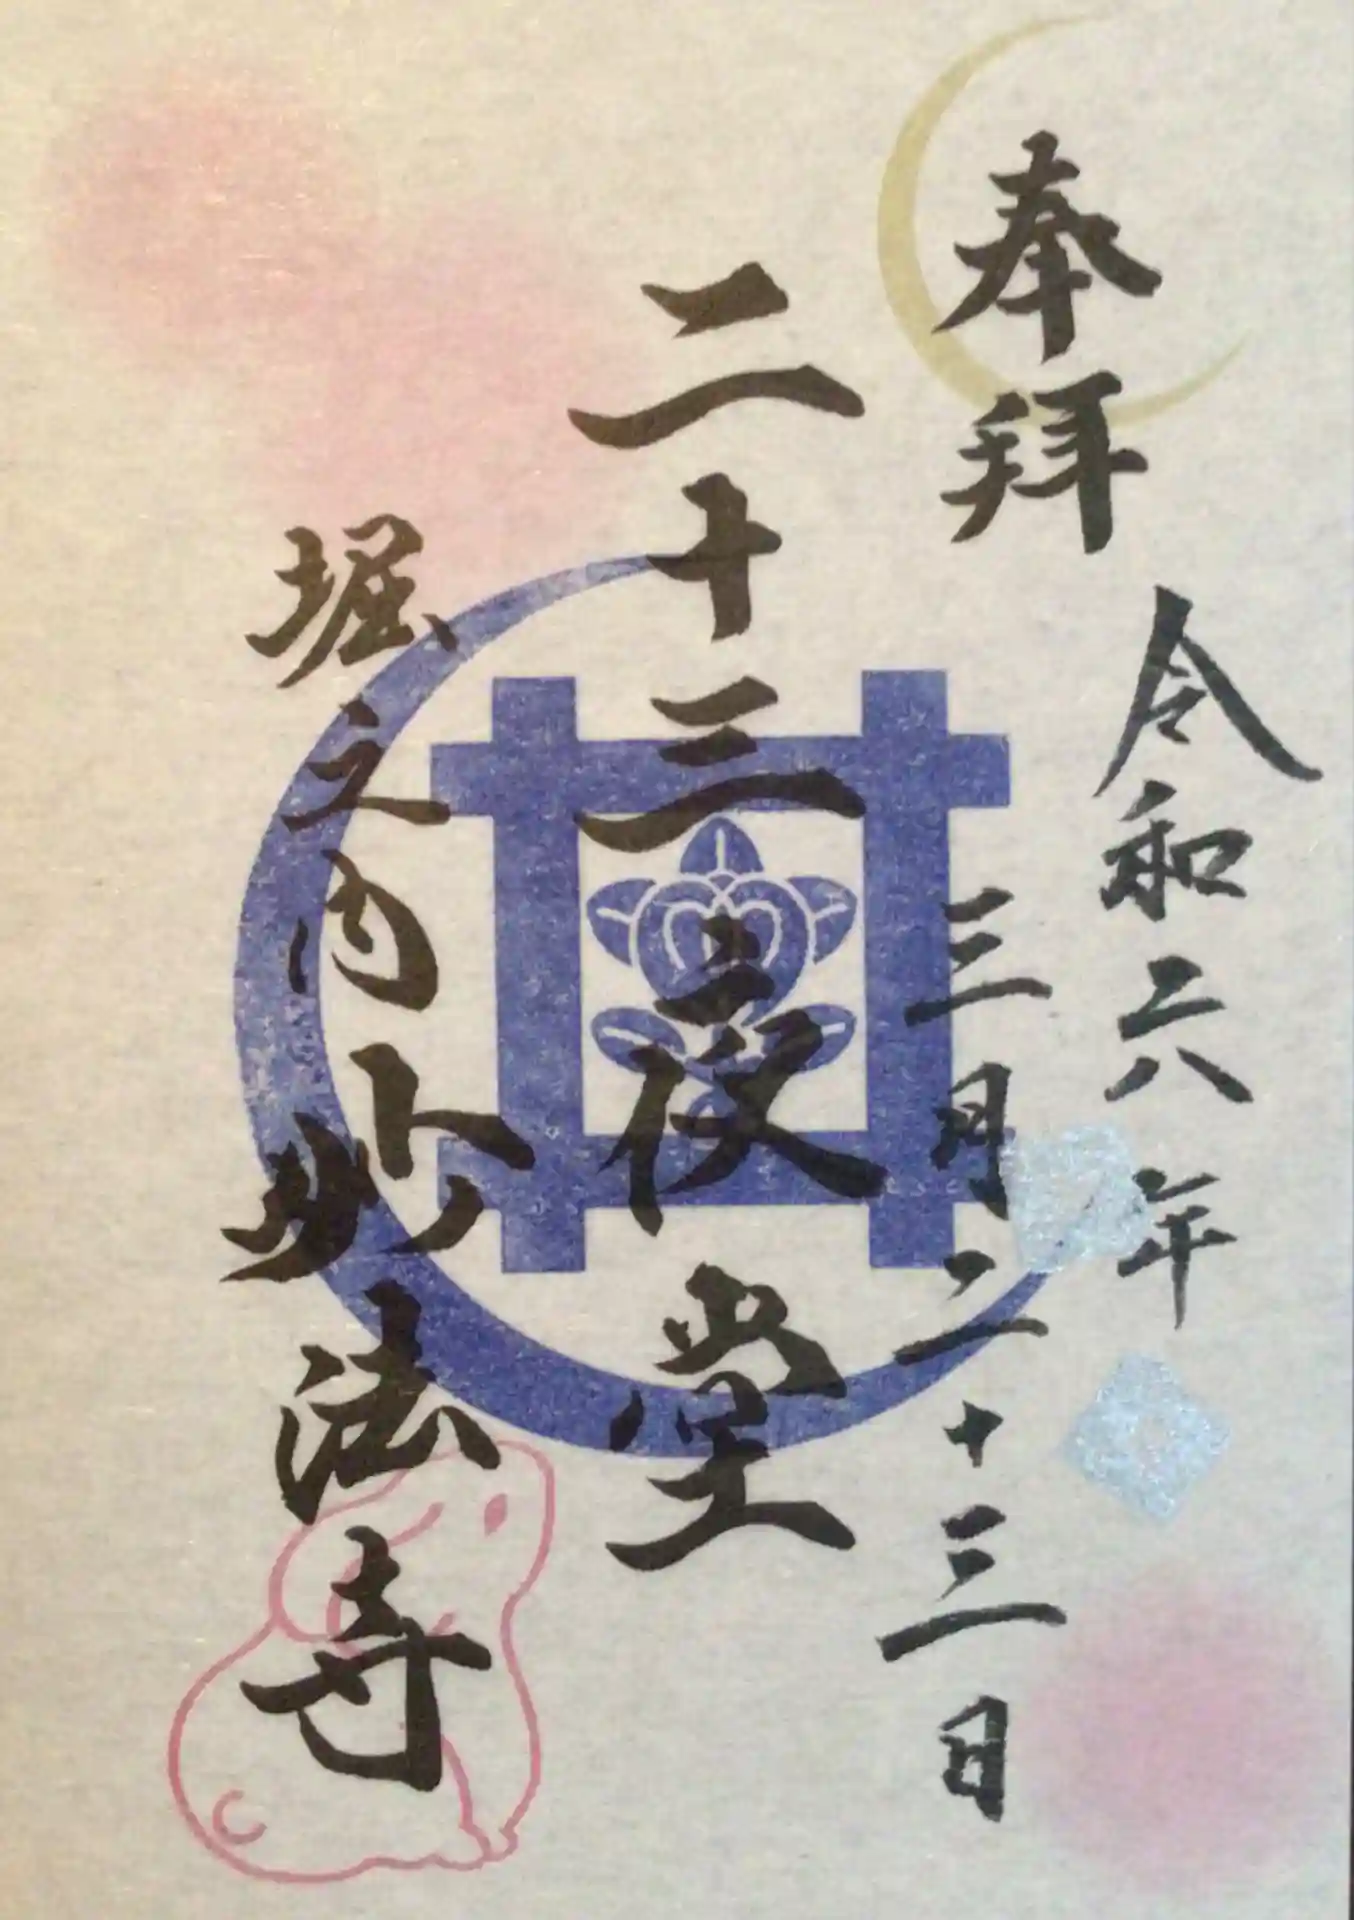 奉拝
令和六年
三月二十三日
二十三夜堂
堀之内妙法寺